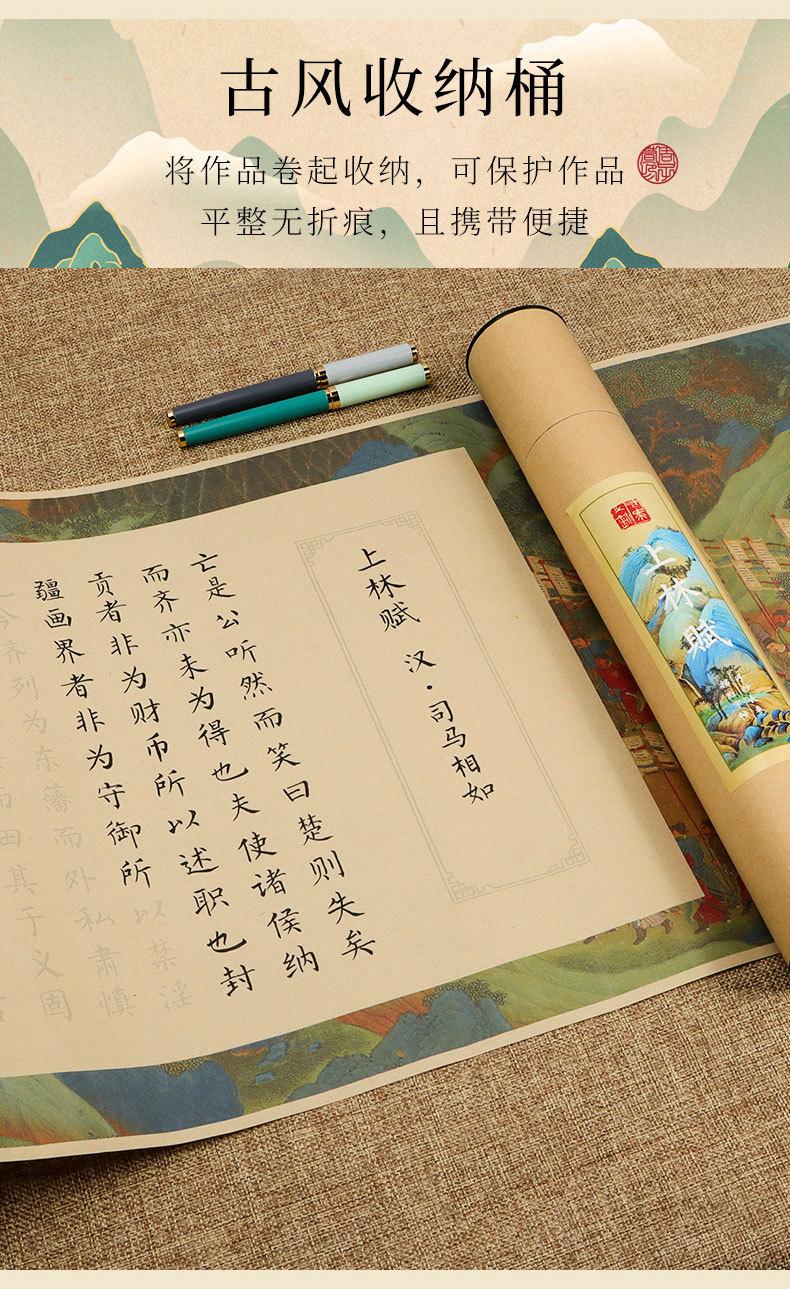 古风收纳桶
将作品卷起收纳，可保护作品
平整无折痕，且携带便捷
上林赋 汉·司马相如
亡是公听然而笑曰楚则失矣
而齐亦未为得也夫使诸侯纳
贡者非为财币所以述职也封
疆画界者非为守御所以禁淫
今齐列为东藩而外私肃慎
而田其于义固
上林赋